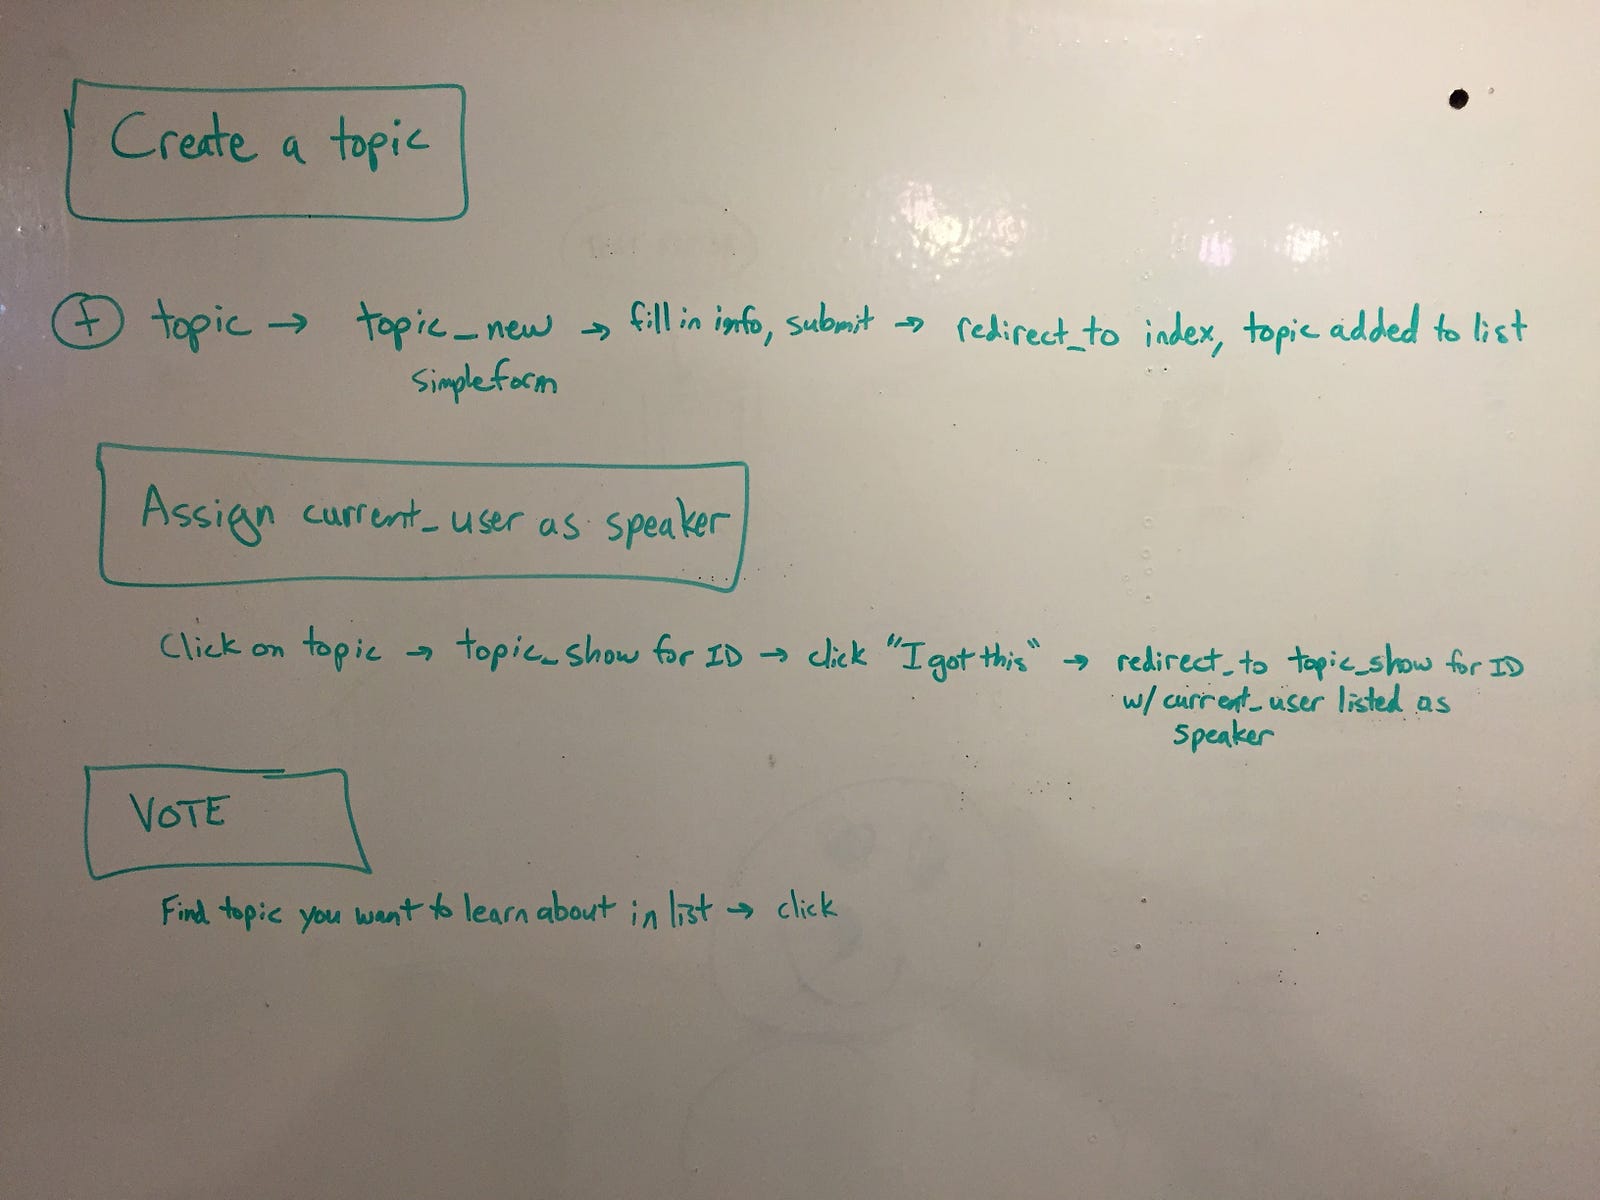 Create a topic
+ topic → topic_new → fill in info, submit → redirect_to index, topic added to list
simple form
Assign current_user as speaker
Click on topic → topic_show for ID → click "I got this" → redirect_to topic_show for ID
w/ current_user listed as
speaker
VOTE
Find topic you want to learn about in list → click